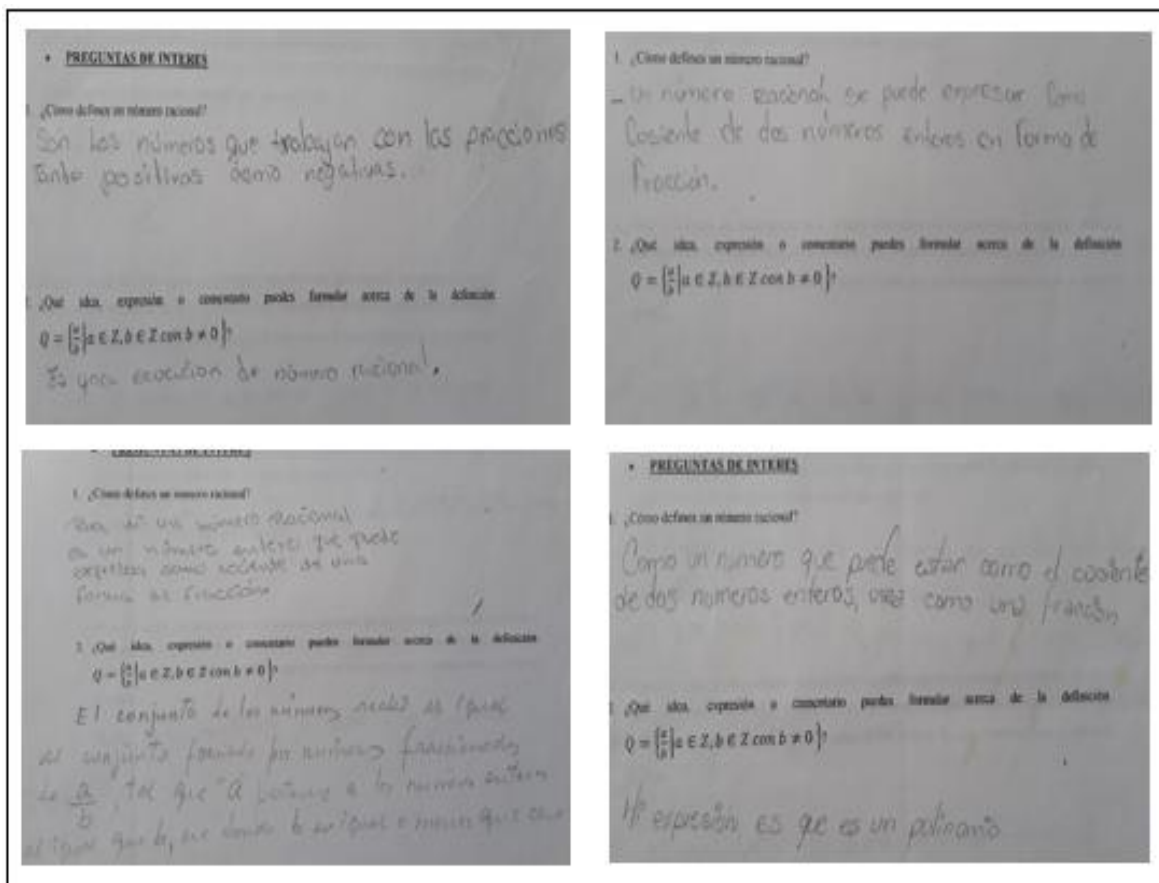 • PREGUNTAS DE INTERES
1. ¿Cómo defines un número racional?
Son los números que trabajan con las fracciones
tanto positivas como negativas.
2. ¿Qué idea, expresión o comentario puedes formular acerca de la definición
Q = {a/b | a ∈ Z, b ∈ Z con b ≠ 0}?
Es una de número racional.
1. ¿Cómo defines un número racional?
- un número racional se puede expresar como
Cosiente de dos números enteros en forma de
fracción.
2. ¿Qué idea, expresión o comentario puedes formular acerca de la definición
Q = {a/b | a ∈ Z, b ∈ Z con b ≠ 0}?
PREGUNTAS DE INTERES
1. ¿Cómo defines un número racional?
un número Racional
es un número entero que puede
como de una
forma de fracción
2. ¿Qué idea, expresión o comentario puedes formular acerca de la definición
Q = {a/b | a ∈ Z, b ∈ Z con b ≠ 0}?
El conjunto de los números es igual
al conjunto formado por números
de a/b, tal que "a" a los números enteros
al igual que b, en donde b es igual o que
• PREGUNTAS DE INTERES
1. ¿Cómo defines un número racional?
Como un número que puede estar como el cosiente
de dos números enteros, como una fracción
2. ¿Qué idea, expresión o comentario puedes formular acerca de la definición
Q = {a/b | a ∈ Z, b ∈ Z con b ≠ 0}?
Mi expresión es que es un polinomio